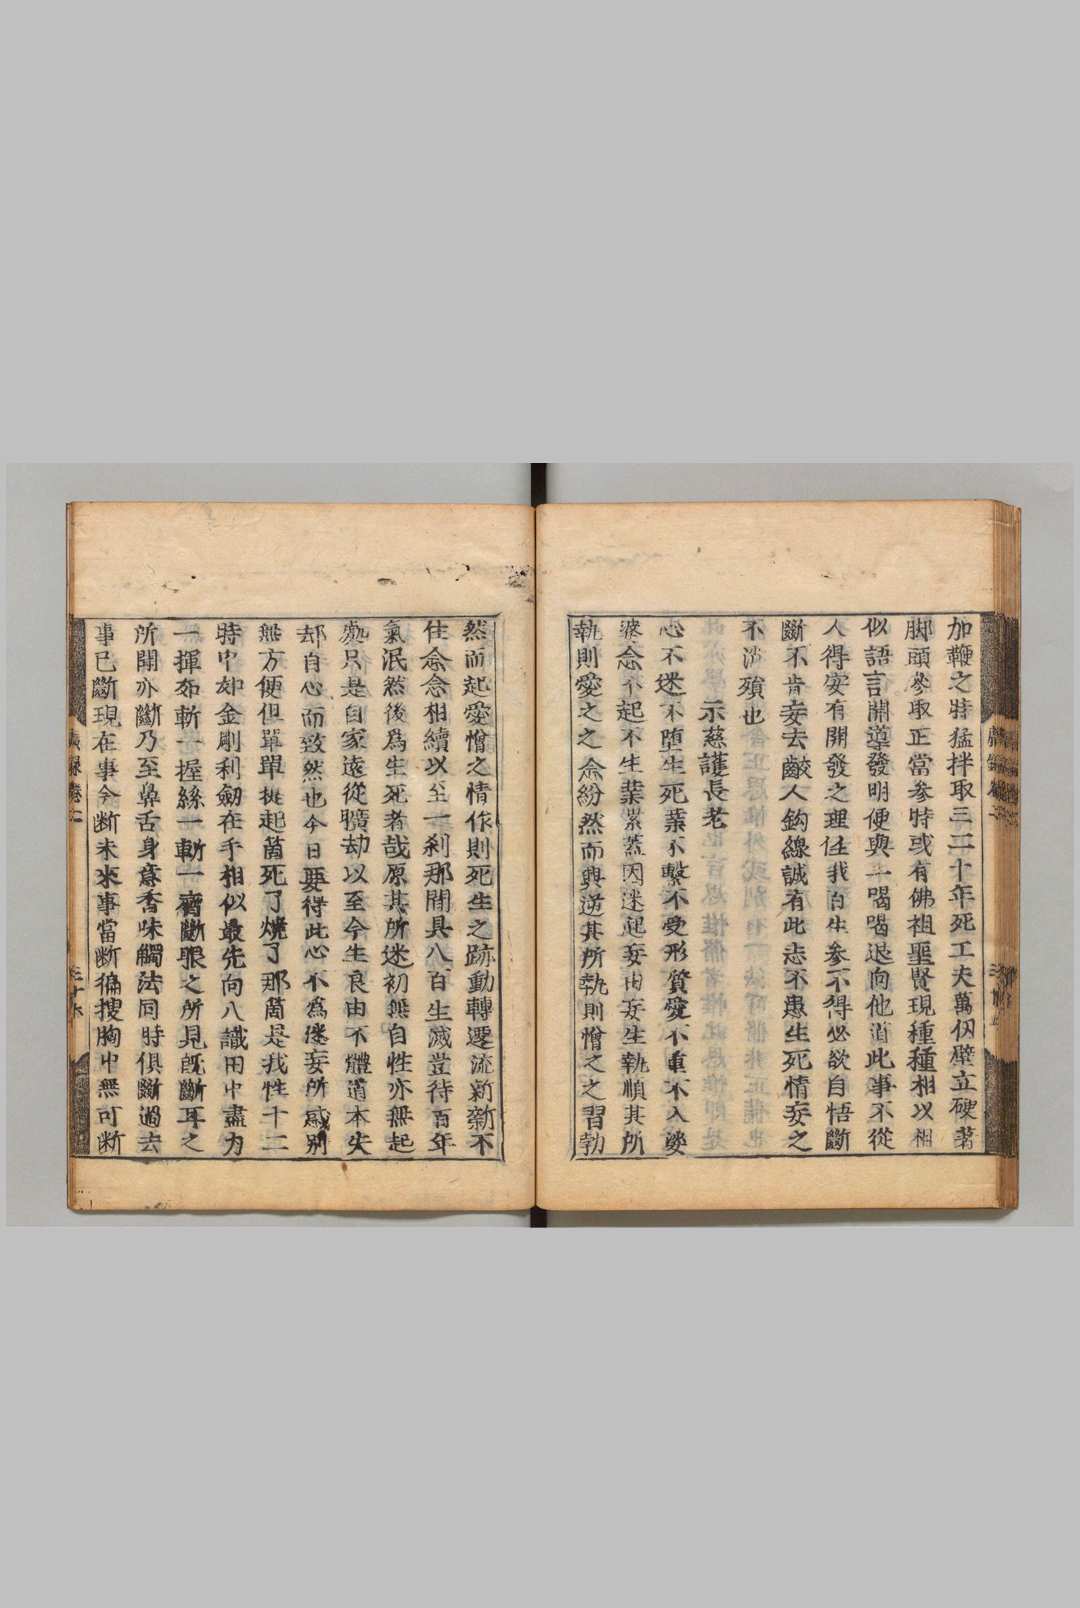 加鞭之特猛拌取三二十年死工夫萬仭壁立硬著
脚頭參取正當參時或有佛祖聖賢現種種相以相
似語言開導發明便與一喝喝退向他道此事不從
人得安有開發之理任我百生參不得必欲自悟斷
斷不肯妄去齩人鈎線誠有此志不患生死情妄之
不消殞也
示慈護長老
心不迷不墮生死業不繫不受形質愛不重不入娑
婆念不起不生業累蓋因迷起妄由妄生執順其所
執則愛之之念紛然而興逆其所執則憎之之習勃
然而起愛憎之情作則死生之跡動轉遷流新新不
住念念相續以至一刹那間具八百生滅豈待百年
氣泯然後為生死者哉原其所迷初無自性亦無起
處只是自家遠從曠劫以至今生良由不體道本失
却自心而致然也今日要得此心不為迷妄所惑别
無方便但單單提起箇死了燒了那箇是我性十二
時中如金剛利劒在手相似最先向八識田中盡力
一揮如斬一握絲一斬一齊斷眼之所見既斷耳之
所聞亦斷乃至鼻舌身意香味觸法同時俱斷過去
事已斷現在事今断未來事當断徧搜胸中無可断
廣録卷二